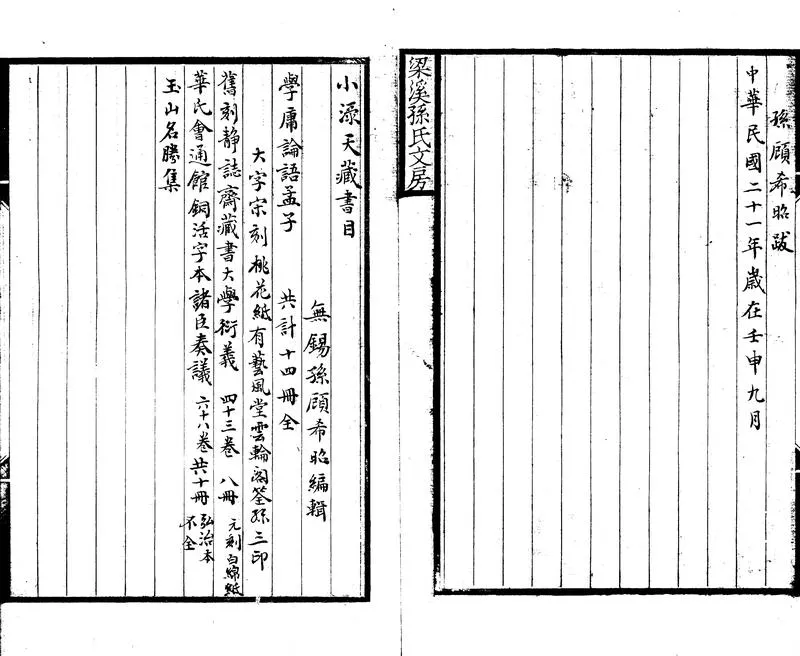 中華民國二十一年歲在壬申九月
孫顧希昭跋
梁溪孫氏文房
小淥天藏書目
無錫孫顧希昭編輯
學庸論語孟子 共計十四冊全
大字宋刻桃花紙有藝風堂雲輪閣荃孫三印
舊刻靜誌齋藏書大學衍義 四十三卷 八冊 元刻白綿紙
華氏會通館銅活字本諸臣奏議 六十八卷共十冊 弘治本不全
玉山名勝集